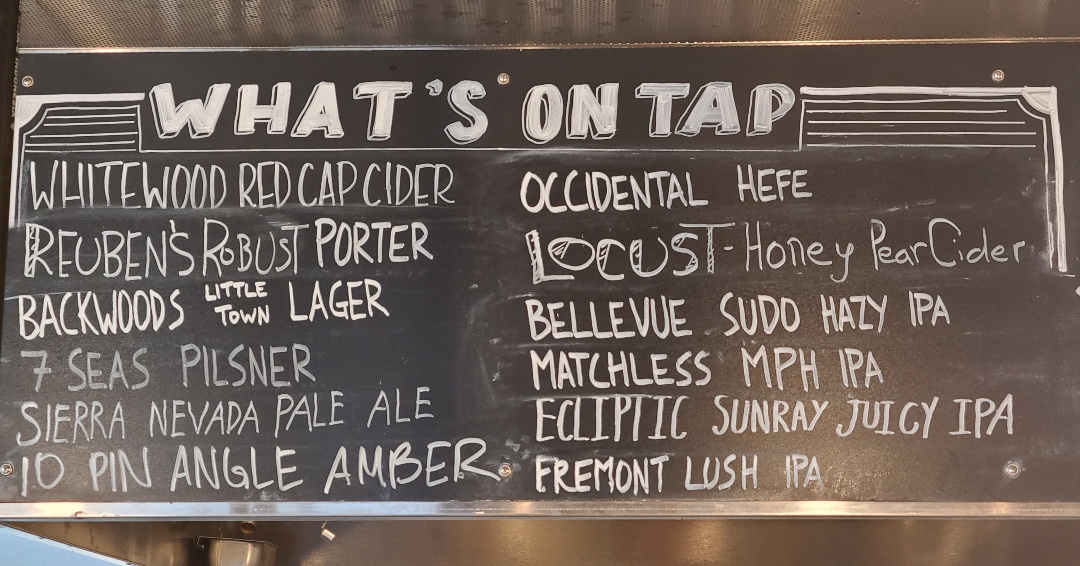 WHAT'S ON TAP
WHITEWOOD RED CAP CIDER
REUBEN'S ROBUST PORTER
BACKWOODS LITTLE TOWN LAGER
7 SEAS PILSNER
SIERRA NEVADA PALE ALE
10 PIN ANGLE AMBER
OCCIDENTAL HEFE
LOCUST-Honey Pear Cider
BELLEVUE SUDO HAZY IPA
MATCHLESS MPH IPA
ECLIPTIC SUNRAY JUICY IPA
FREMONT LUSH IPA